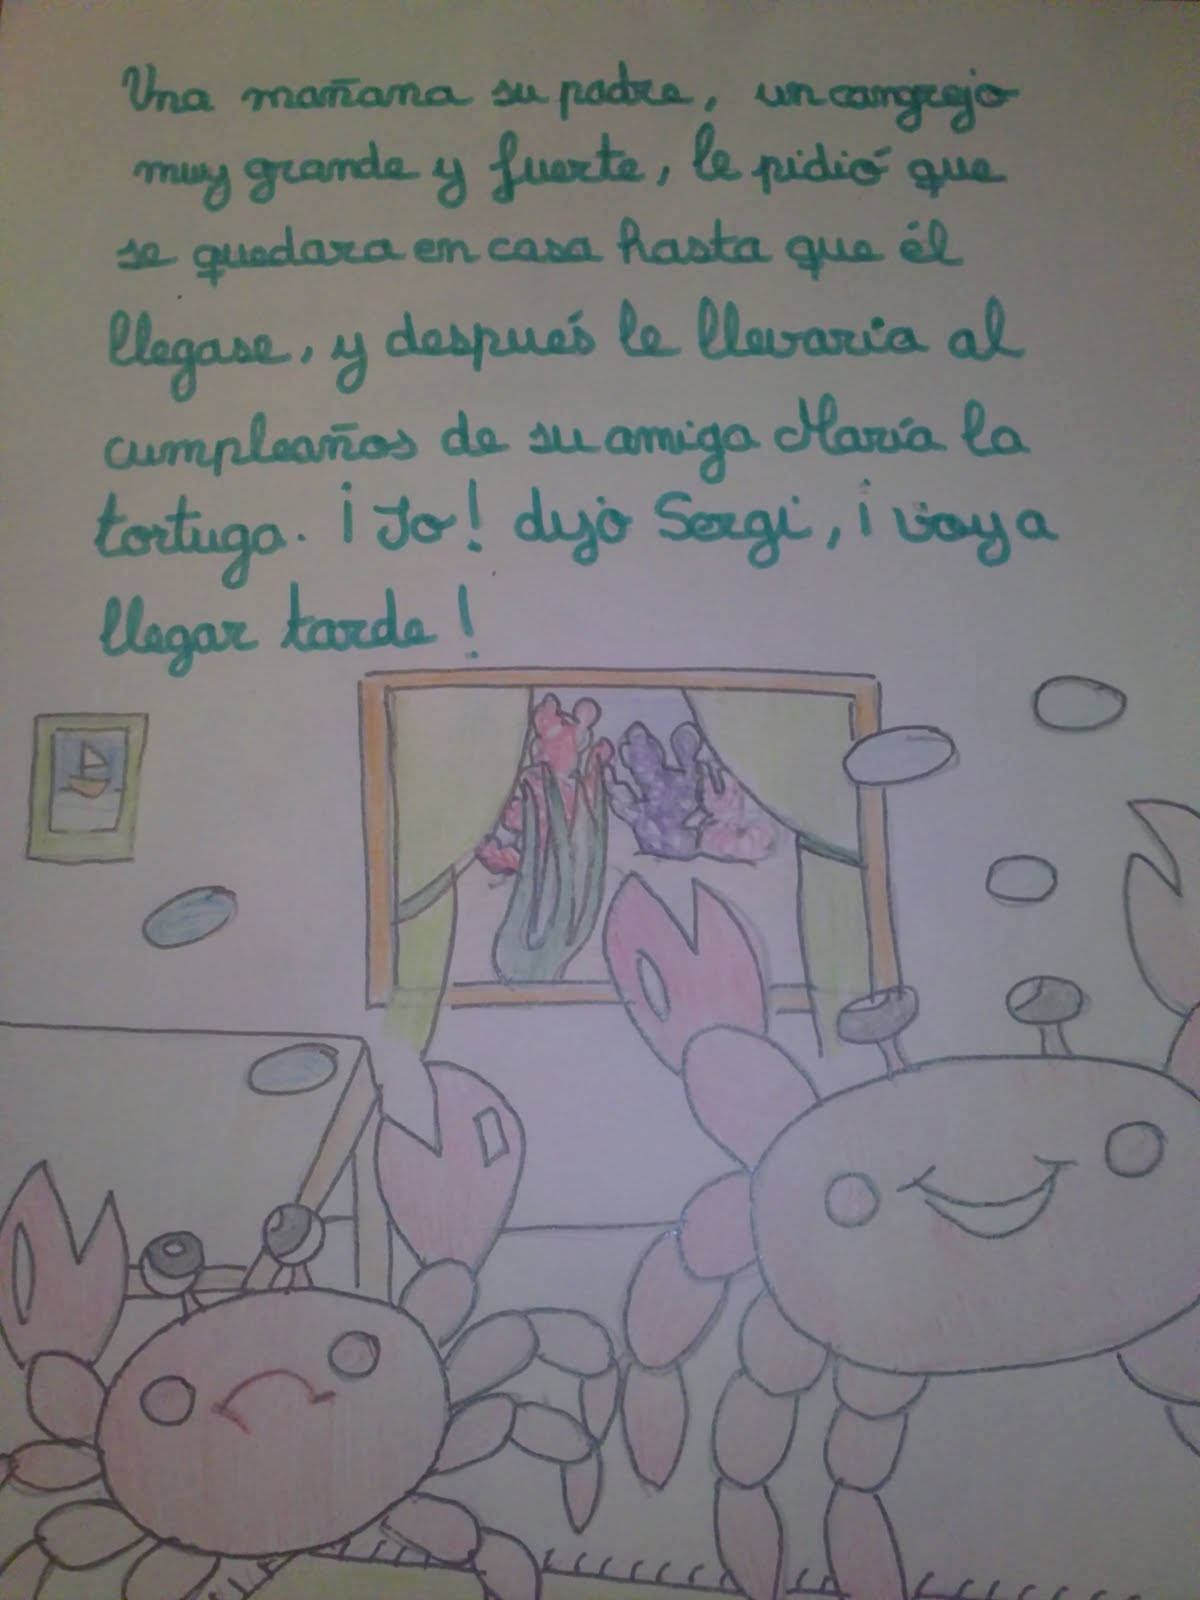 Una mañana su padre, un cangrejo
muy grande y fuerte, le pidió que
se quedara en casa hasta que él
llegase, y después le llevaria al
cumpleaños de su amiga María la
tortuga. ¡Jo! dijo Sergi, ¡voy a
llegar tarde!